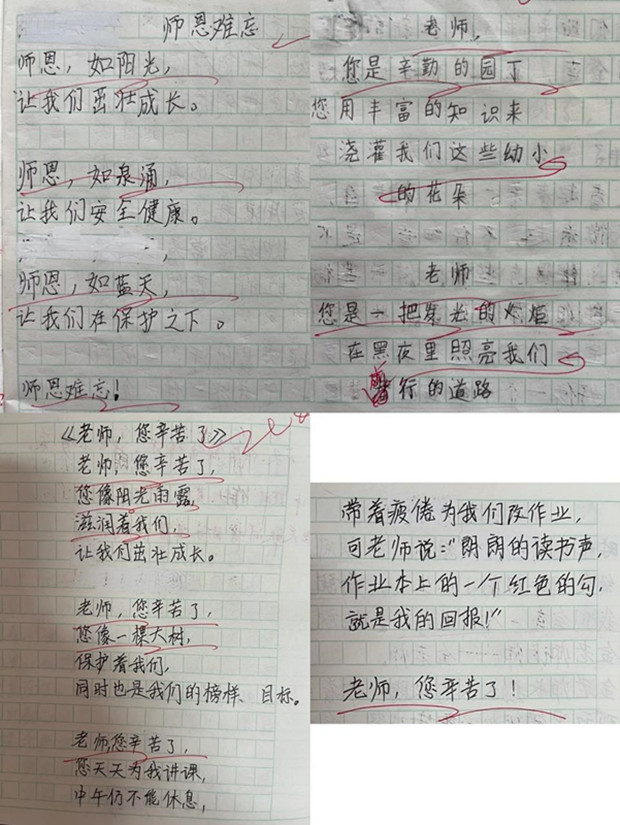 师恩难忘
师恩，如阳光，
让我们茁壮成长。
师恩，如泉涌，
让我们安全健康。
师恩，如蓝天，
让我们在保护之下。
师恩难忘！
老师，
您是辛勤的园丁
您用丰富的知识来
浇灌我们这些幼小
的花朵
老师
您是一把发光的火炬
在黑夜里照亮我们
前行的道路
《老师，您辛苦了》
老师，您辛苦了，
您像阳光雨露，
滋润着我们，
让我们茁壮成长。
老师，您辛苦了，
您像一棵大树，
保护着我们，
同时也是我们的榜样、目标。
老师，您辛苦了，
您天天为我讲课，
中午仍不能休息，
带着疲倦为我们改作业，
可老师说：“朗朗的读书声，
作业本上的一个红色的勾，
就是我的回报！”
老师，您辛苦了！